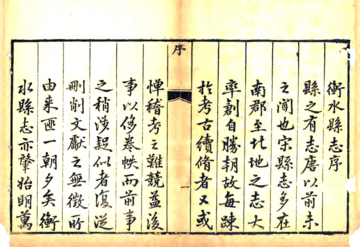 衡水縣志序
縣之有志唐以前未
之聞也宋縣志多在
南郡至北地之志大
率創自勝朝故每疎
於考古續脩者又或
序
憚稽考之難競益後
事以侈卷帙而前事
之稍涉疑似者復逕
刪削文獻之無徵所
由來匪一朝夕矣衡
水縣志亦肇始明萬